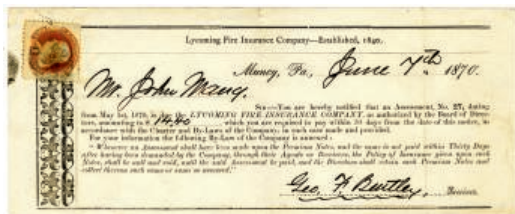 Lycoming Fire Insurance Company—Established, 1840.
Muncy, Pa, June 7th 1870.
Mr. John
Sir:—You are hereby notified that an Assessment, No. 27, dating
from May 1st, 1870, is due the LYCOMING FIRE INSURANCE COMPANY, as authorized by the Board of Direc-
tors, amounting to $ 14.40 which you are required to pay within 30 days from the date of this notice, in
accordance with the Charter and By-Laws of the Company; in such case made and provided.
For your information the following By-Law of the Company is annexed:
"Whenever an Assessment shall have been made upon the Premium Notes, and the same is not paid within Thirty Days
after having been demanded by the Company, through their Agents or Receivers, the Policy of Insurance given upon such
Notes, shall be null and void, until the said Assessment be paid, and the Directors shall retain such Premium Notes and
collect thereon such sums as assessed."
Geo. F. Bentley, Receiver.